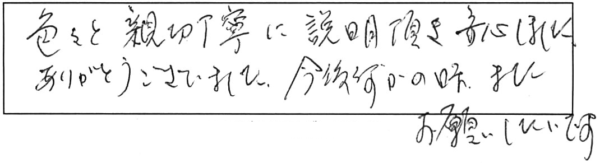 色々と親切丁寧に説明頂き安心しました
ありがとうございました。今後何かの時、また
お願いしたいです